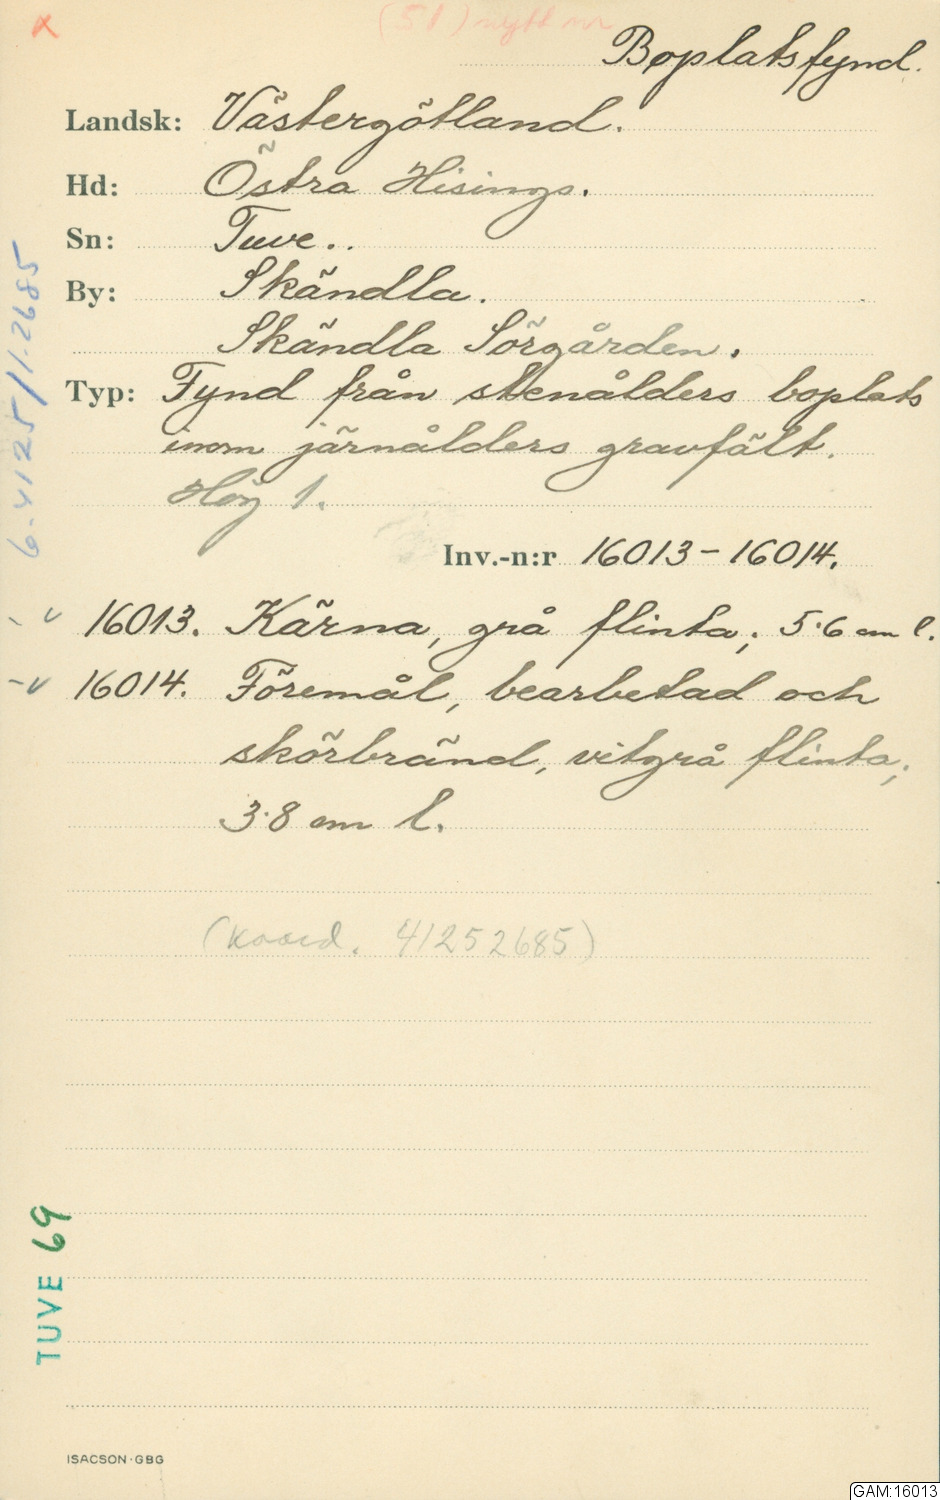 x
(51) nytt nr
Boplatsfynd.
Landsk: Västergötland.
Hd: Östra Hisings.
Sn: Tuve..
By: Skändla.
Skändla Sörgården.
Typ: Fynd från stenålders boplats
inom järnålders gravfält.
Hög 1.
Inv.-n:r 16013-16014.
16013. Kärna, grå flinta; 5.6 cm l.
16014. Föremål, bearbetad och
skörbränd, vitgrå flinta;
3.8 cm l.
(koord. 41252685)
6-4125/1-2685
TUVE 69
ISACSON·GBG
GAM:16013